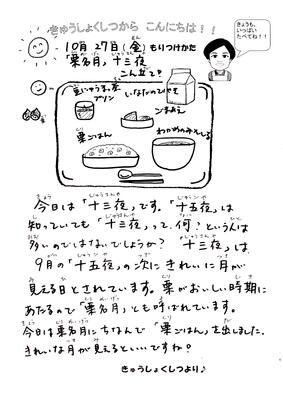 きゅうしょくしつから こんにちは！！
きょうも、
いっぱい
たべてね！！
10月 27日(金) もりつけかた
「栗名月」十三夜
こんだて
プリン
ごまあえ
わかめのみそしる
栗ごはん
今日は「十三夜」です。「十五夜」は
知っていても「十三夜」って、何？という人は
多いのではないでしょうか？ 「十三夜」は、
9月の「十五夜」の次に きれいに月が
見える日とされています。栗がおいしい時期に
あたるので「栗名月」とも呼ばれています。
今日は栗名月にちなんで「栗ごはん」を出しました。
きれいな月が見えるといいですね？
きゅうしょくしつより♪